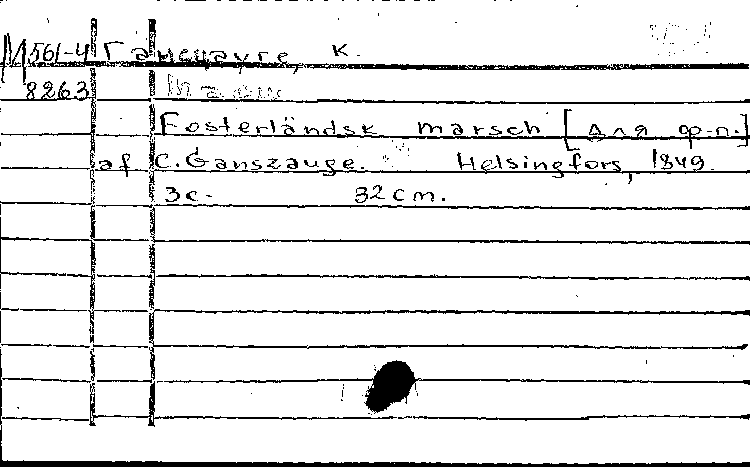 М561-4 Ганецауге, К.
8263
Fosterländsk marsch [для ф-п.]
af C. Ganszauge. Helsingfors, 1849.
3с. 32 см.